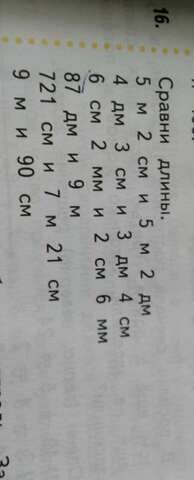 16. Сравни длины.
5 м 2 см и 5 м 2 дм
4 дм 3 см и 3 дм 4 см
6 см 2 мм и 2 см 6 мм
87 дм и 9 м
721 см и 7 м 21 см
9 м и 90 см